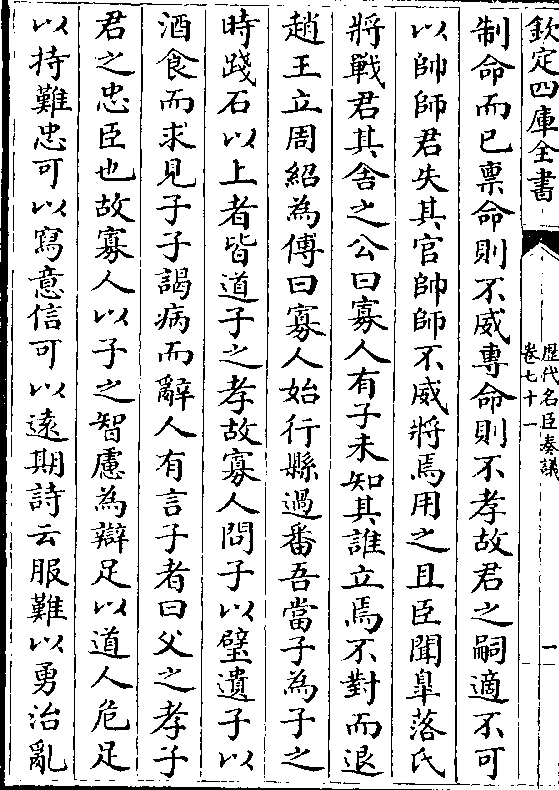 欽定四庫全書
歷代名臣奏議
卷七十一
一
制命而已稟命則不威專命則不孝故君之嗣適不可
以帥師君失其官帥師不威將焉用之且臣聞臯落氏
將戰君其舍之公曰寡人有子未知其誰立焉不對而退
趙王立周紹為傅曰寡人始行縣過番吾當子為子之
時踐石以上者皆道子之孝故寡人問子以璧遺子以
酒食而求見子子謁病而辭人有言子者曰父之孝子
君之忠臣也故寡人以子之智慮為辯足以道人危足
以持難忠可以寫意信可以遠期詩云服難以勇治亂